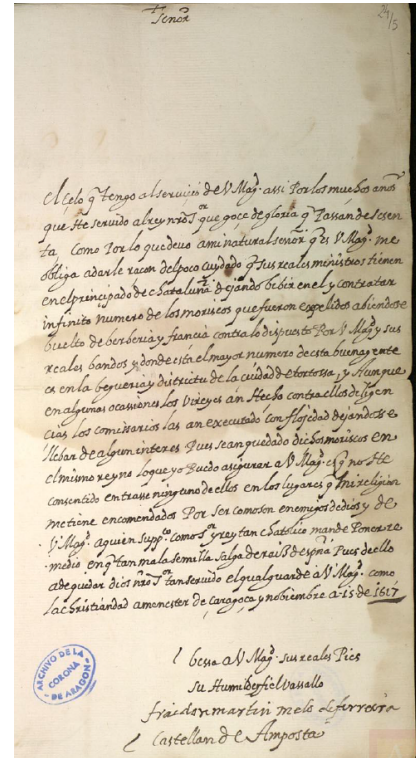 24/3
Señor
El çelo q̃ tengo al serviçio de V Magᵈ. assi Por los muchos años
que He servido al rey nr̃o Sᵒʳ que goce de gloria q̃ Passan de sesen
ta, Como Por lo que devo a mi natural señor q̃ es V Magᵈ. me
obliga a darle raçon del poco cuydado q̃ sus reales ministros tienen
en el principado de chataluña dejando bibir en el y contratar
infinito numero de los moriscos que fueron expelidos abiendose
buelto de berberia y francia contra lo dispuesto Por V Magᵈ y sus
reales bandos y donde esta el mayor numero de esta buena gente
es en la begueria y districtu de la cuidad de tortossa, y Aunque
en algunas ocassiones los Vireyes an Hecho contra ellos diligen
cias los comissarios las an executado con flojedad dejandose
llebar de algun interes Pues se an quedado dichos moriscos en
el mismo reyno lo que yo Puedo asigurar a V Magᵈ. es q̃ no He
consentido entrasse ninguno de ellos en los lugares q̃ mi religion
me tiene encomendados Por ser como son enemigos de dios y de
V Magᵈ. a quien suppᶜᵒ como Sᵒʳ y rey tan chatolico mande Poner re
medio en q̃ tan mala semilla salga de raiz de espña Pues de ello
a de quedar dios nr̃o Sᵒʳ tan servido el qual guarde a V Magᵈ. como
la christiandad a menester de caragoça y nobiembre a 15 de 1617
bessa a V Magᵈ. sus reales Pies
su Humilde fiel Vassallo
frai don martin melo de ferreira
Castellan de Amposta
ARCHIVO DE LA
CORONA
DE ARAGON